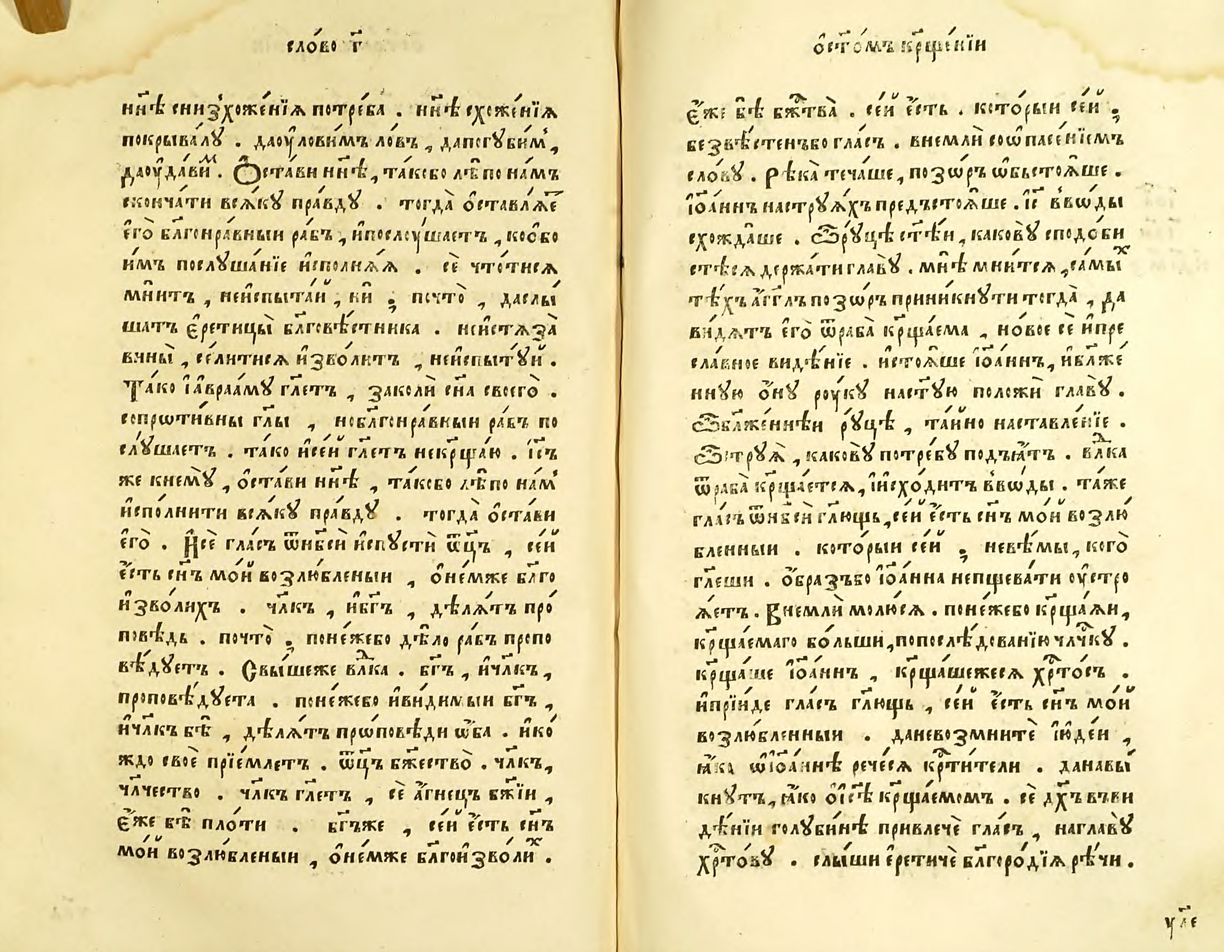 сло́во г҃
нн҃ѣ снизхоже́нїѧ потре́ба . нн҃ѣ схоже́нїѧ
покрыва́лꙋ . даоу̓лови́мъ ло́въ , дапогꙋби́м ,
даоу̓дави́м . Ѻ҆ста́ви нн҃ѣ , та́кобо лѣ́по на́мъ
сконча́ти всѧ́кꙋ пра́вдꙋ . тогда̀ о҆ставлѧ́е
е҆го̀ бл҃гонра́вныи ра́бъ , и҆послоу́шаетъ , кое́бо
и҆мъ послꙋша́нїе и҆сполнѧ́ѧ . сѐ что́тисѧ
мни́тъ , неи҆спыта́й , нѝ ; почто̀ , даслы́
шатъ є҆ретицы̀ бл҃говѣ́стника . неи҆стѧза́
вины̀ , се́литисѧ и҆зво́литъ , неи҆спытꙋ́и .
Та́ко і҆авраа́мꙋ гл҃етъ , заколѝ сн҃а своего̀ .
сопрѡти́вны гл҃ы , ноблг҃онра́вныи ра́бъ по
слꙋ́шаетъ . та́ко и҆се́й гл҃етъ некрщ҃а́ю . і҆с҃ъ
же кнемꙋ̀ , о҆ста́ви нн҃ѣ , та́кобо лѣ́по на́м
и҆спо́лнити всѧ́кꙋ пра́вдꙋ . тогда̀ о҆ста́ви
е҆го̀ . И҆сѐ гла́съ ѿнб҃сѝ и҆спꙋстѝ ѿц҃ъ , се́й
е҆́сть сн҃ъ мо́й возлю́бленыи , о҆не́мже бл҃го
и҆зво́лихъ . чл҃къ , и҆бг҃ъ , дѣлѧ́тъ про́
повѣдь . почто̀ ; поне́жебо дѣ́ло ра́бъ пропо
вѣ́дꙋетъ . Свы́шеже вл҃ка . бг҃ъ , и҆чл҃къ ,
проповѣ́дꙋета . поне́жебо и҆ви́димыи бг҃ъ ,
и҆чл҃къ бѣ̀ , дѣлѧ́тъ прѡ́повѣди ѡ҆́ба . и҆ко
ждо своѐ прїе́млетъ . ѿц҃ъ бж҃ество̀ . чл҃къ ,
чл҃чество . чл҃къ гл҃етъ , сѐ а҆́гнецъ бж҃їи ,
є҆́же бѣ̀ пло́ти . бг҃ъже , се́й е҆́сть сн҃ъ
мо́й возлю́бленыи , о҆не́мже бл҃гоизво́лих .
о҆ст҃о́мъ крщ҃е́нїи
є҆́же бѣ̀ бж҃тва̀ . се́й е҆́сть . кото́рыи се́й ;
безвѣ́стенъбо гла́съ . внемлѝ соѡ҆пасе́нїемъ
сло́вꙋ . рѣка̀ теча́ше , позѡ́ръ ѡ҆бьстоѧ́ше .
і҆ѡа́ннъ настрꙋѧ́хъ предъстоѧ́ше . і҆с҃ вво́ды
схожда́ше . Ѽрꙋцѣ̀ ст҃ѣ́и , какову̀ сподо́би
стесѧ держа́ти главꙋ̀ . мнѣ́ мни́тсѧ , самы́х
тѣ́хъ а҆́гг҃лъ позѡ́ръ прини́кнꙋти тогда̀ , да
ви́дѧтъ е҆го̀ ѿраба̀ крщ҃а́ема , но́вое сѐ и҆пре
сла́вное видѣ́нїе . и҆стоѧ́ше і҆ѡа́ннъ , и҆бл҃же́
ннꙋю о҆́нꙋ рꙋ́кꙋ наст҃ꙋ́ю положѝ главꙋ̀ .
Ѽбл҃же́ннѣи рꙋ́цѣ , та́йно наставле́нїе .
Ѽстрꙋѧ̀ , каковꙋ̀ потре́бꙋ под̾ѧ́тъ . вл҃ка
ѿраба̀ крщ҃а́етсѧ , и҆и҆схо́дитъ вво́ды . та́же
гла́съ ѿнб҃сѝ гл҃ющь , се́й е҆́сть сн҃ъ мо́й возлю́
бленныи . кото́рыи се́й ; невѣ́мы , кого̀
гл҃еши . о҆́бразъбо і҆ѡа́нна непщева́ти оу҆стро
ѧ́етъ . Внемлѝ молю́сѧ . поне́жебо крщ҃а́ѧи ,
крщ҃а́емаго бо́льши , попослѣ́дованїю чл҃чкꙋ .
крщ҃а́ше і҆ѡа́ннъ , крщ҃а́шежесѧ хр҃то́съ .
и҆прїи́де гла́съ гл҃ющь , се́й е҆́сть сн҃ъ мо́й
возлю́бленныи . даневозмнитѐ і҆юде́и ,
ꙗ҆́ко ѡ҆і҆ѡа́ннѣ рече́сѧ кр҃ти́тели . данавы́
кнꙋтъ , ꙗ҆́ко о҆і҆с҃ѣ крщ҃а́емомъ . сѐ дх҃ъ въви
дѣ́нїи голꙋби́нѣ привлечѐ гла́съ , наглавꙋ̀
хр҃то́вꙋ . слы́ши є҆рети́че бл҃горо́дїѧ рѣ́чи .
ул҃е